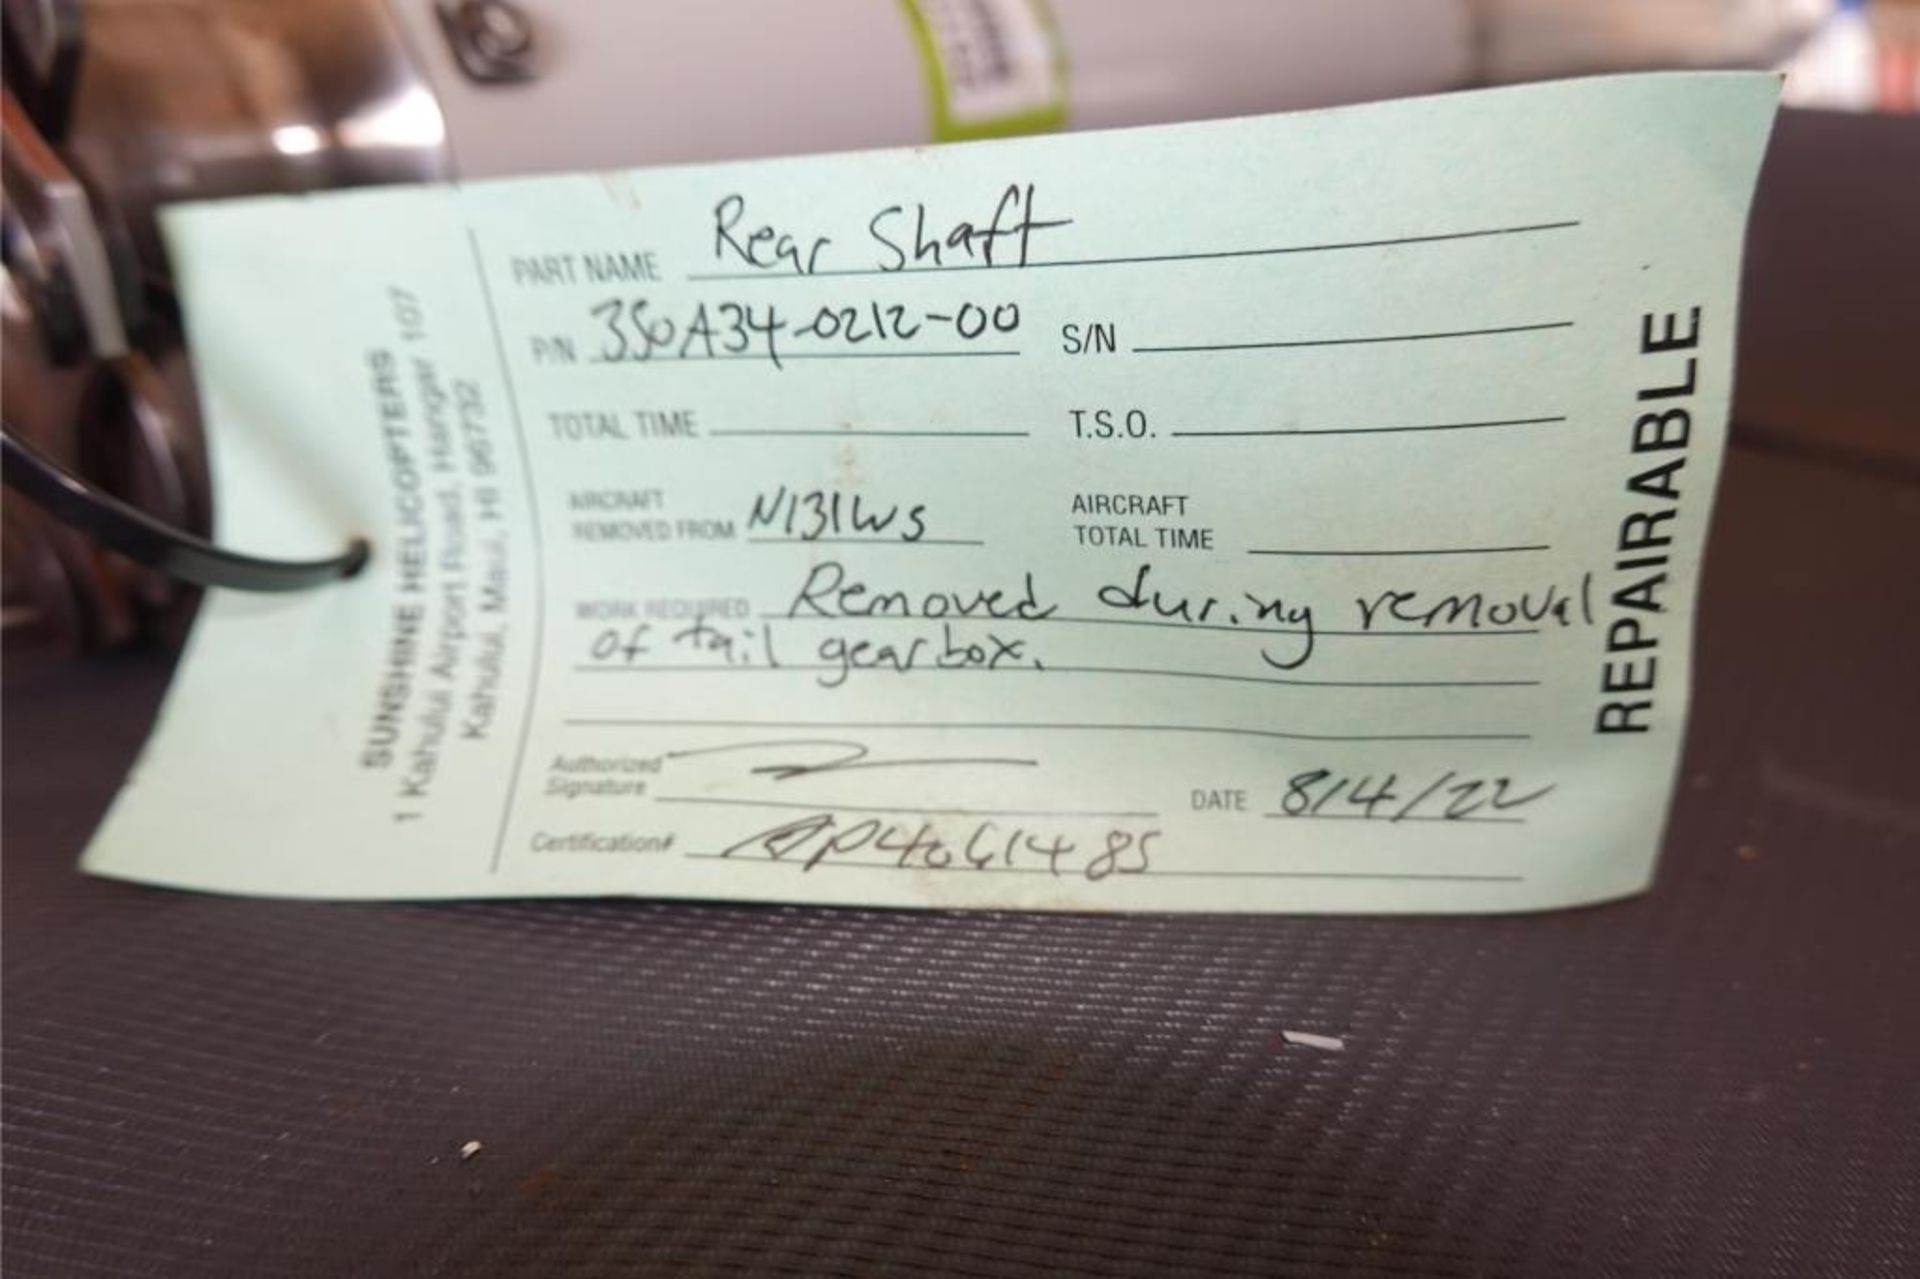 SUNSHINE HELICOPTERS
1 Kahului Airport Road, Hangar 107
Kahului, Maui, HI 96732
PART NAME Rear Shaft
P/N 350A34-0212-00 S/N
TOTAL TIME T.S.O.
AIRCRAFT REMOVED FROM N131WS AIRCRAFT TOTAL TIME
WORK REQUIRED Removed during removal
of tail gearbox.
Authorized Signature DATE 8/4/22
Certification# AP4061485
REPAIRABLE